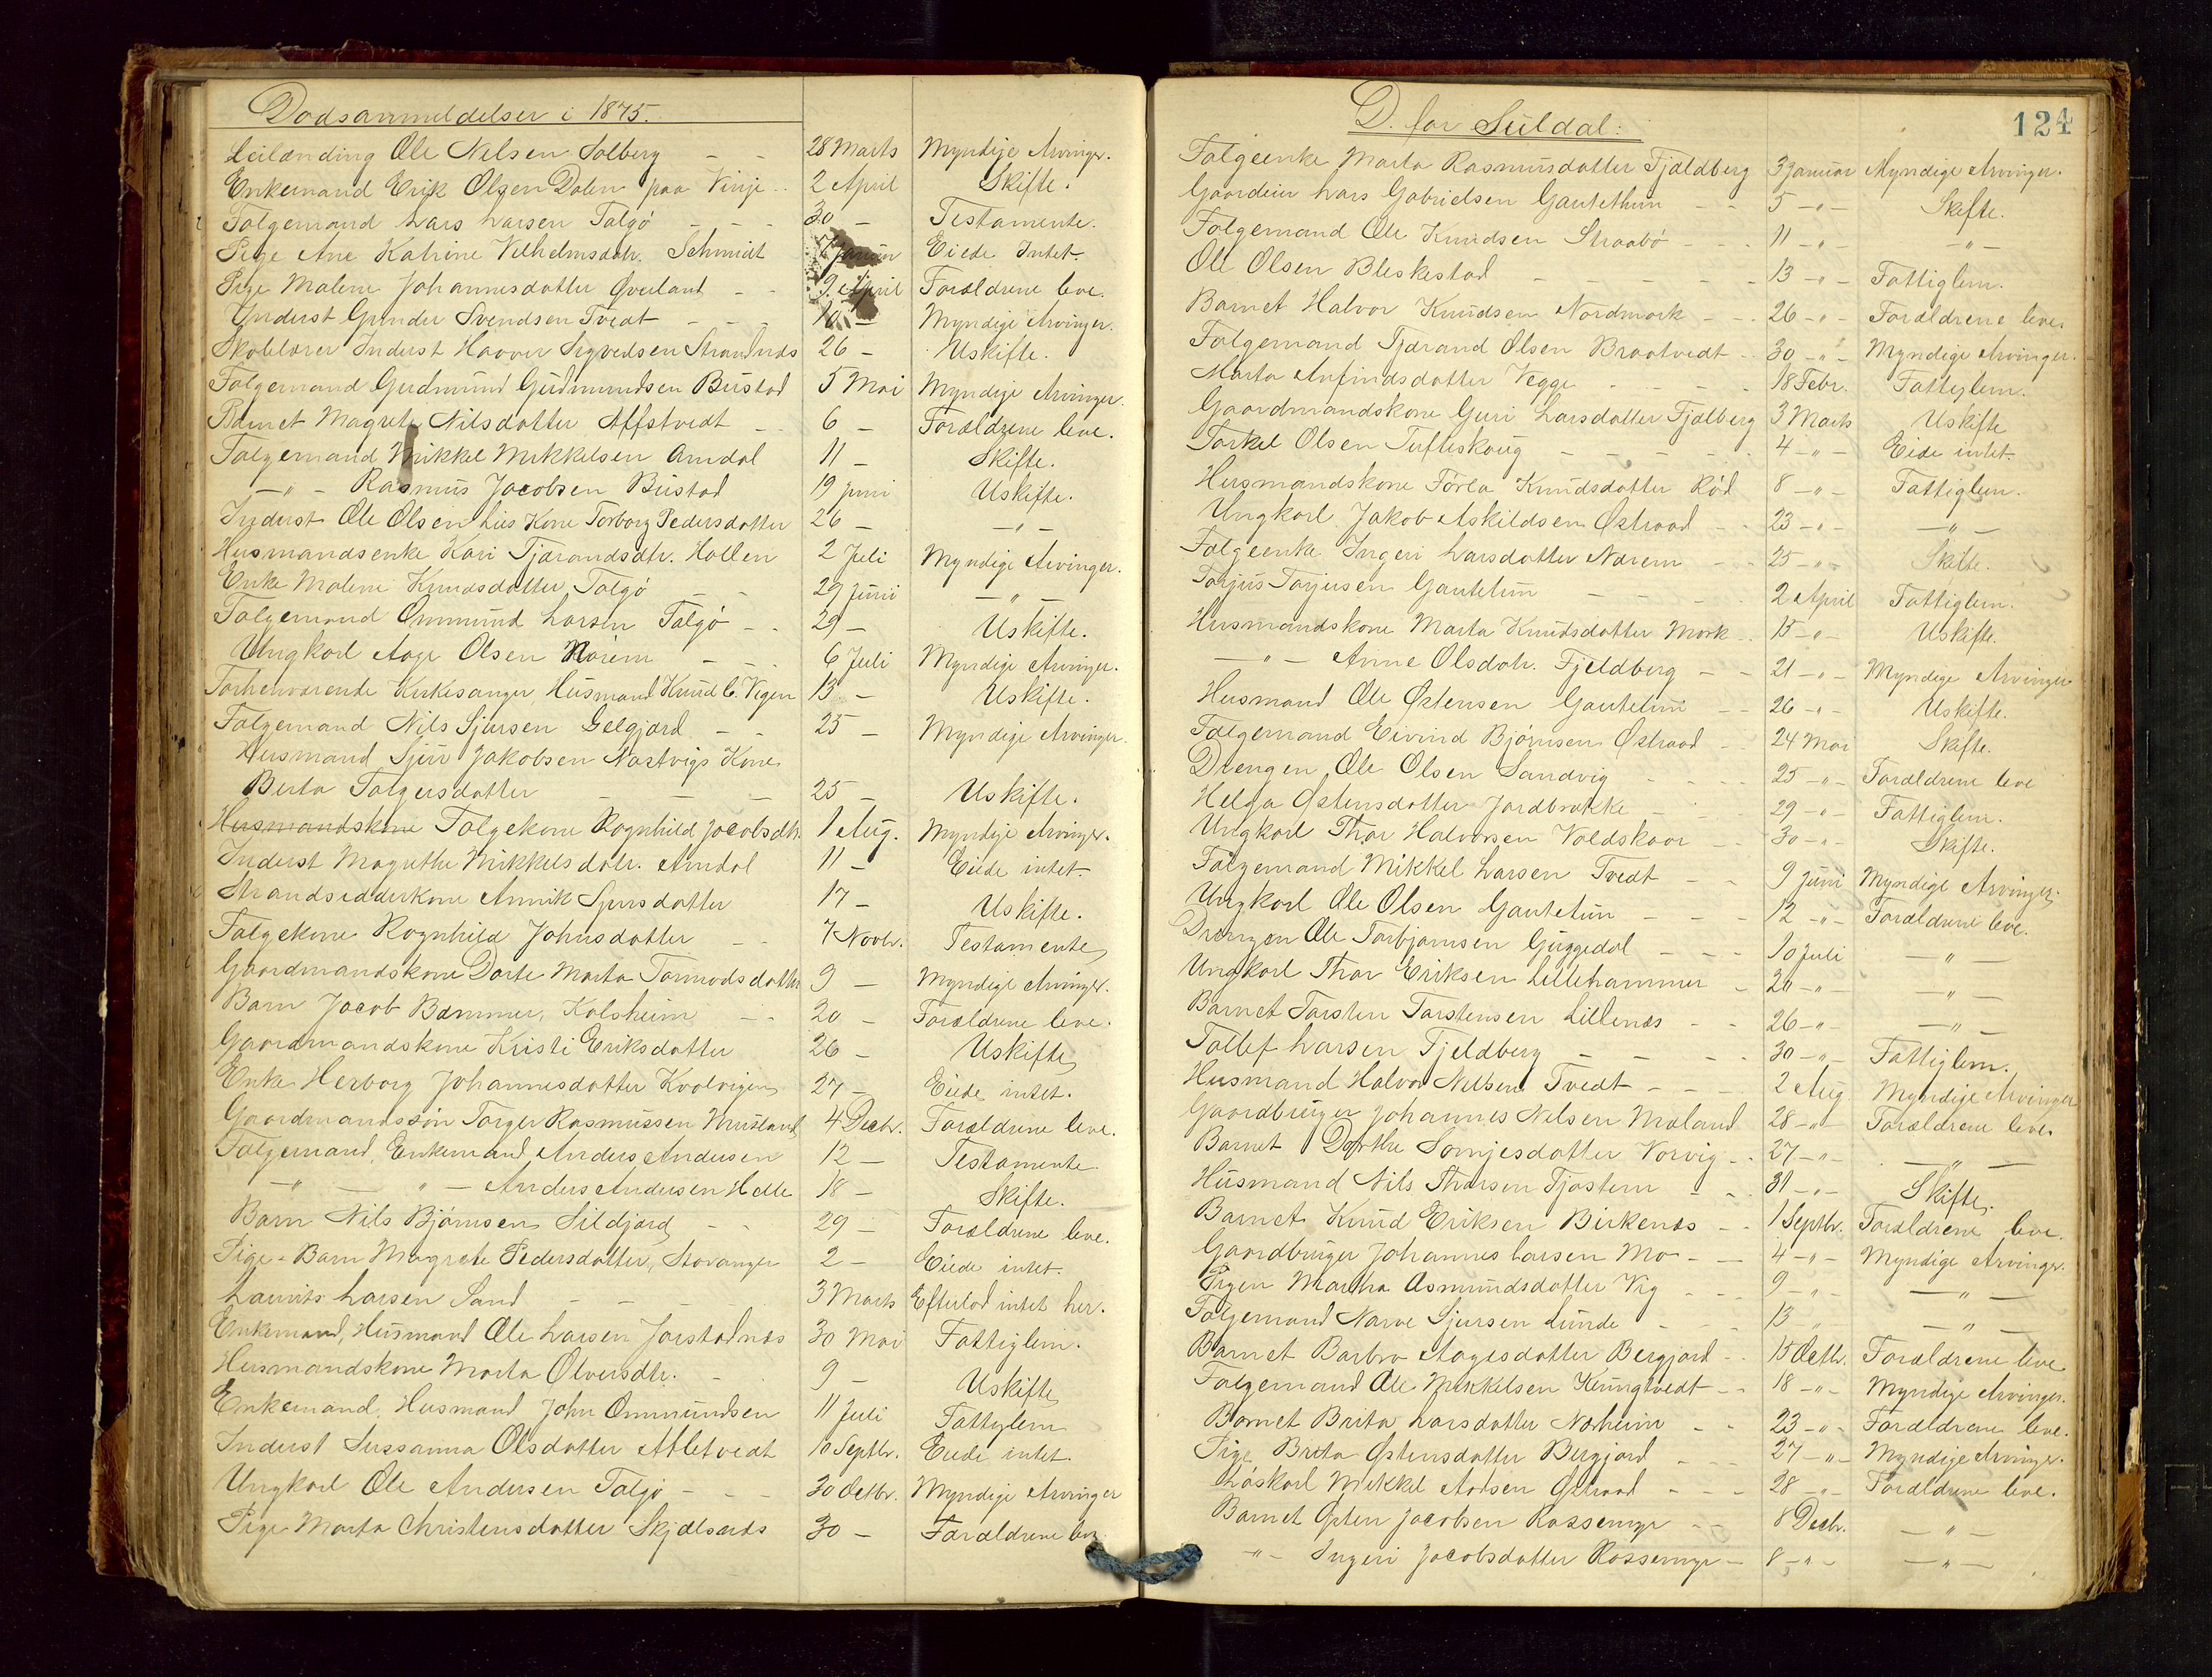 Dødsanmeldelser i 1875.
Leilænding Ole Nilsen Solberg - - 28 Marts Myndige Arvinger.
Enkemand Erik Olsen Dalen paa Vinje - - 2 April Skifte.
Følgemand Lars Larsen Talgø - - - 30 - Testamente.
Pige Ane Katrine Vilhelmsdatr. Schmidt 7 Januar Eiede Intet
Pige Malene Johannesdatter Qveiland - - 9 April Forældrene leve.
Inderst Gunder Svendsen Tvedt - - - 10 - Myndige Arvinger.
Skolelærer Inderst Haaver Sigvedsen Strandnæs 26 - Uskifte.
Følgemand Gudmund Gudmundsen Bustad 5 Mai Myndige Arvinger.
Barnet Magrete Nilsdatter Alfstvedt - - 6 - Forældrene leve.
Følgemand Mikkel Mikkelsen Amdal 11 - Skifte.
-"- Rasmus Jacobsen Bustad 19 Juni Uskifte.
Inderst Ole Olsen Lies Kone Torborg Pedersdatter 26 - -"-
Husmandsenke Kari Tjærandsdtr. Hallen 2 Juli Myndige Arvinger.
Enke Malene Knudsdatter Talgø - - 29 Juni -"-
Følgemand Ommund Larsen Talgø - - 29 - Uskifte.
Ungkarl Aage Olsen Norem - - - 6 Juli Myndige Arvinger.
Forhenværende Kirkesanger Husmand Knud C. Vegen 13 - Uskifte.
Følgemand Nils Sjursen Gelgjord - - 25 - Myndige Arvinger.
Husmand Sjur Jakobsen Nastvigs Kone
Berta Tolgersdatter - - - 25 - Uskifte.
Husmandskone Følgekone Ragnhild Jacobsdtr. 1 Aug. Myndige Arvinger.
Inderst Magrethe Mikkelsdatr. Amdal 11 - Eiede intet
Strandsidderkone Annik Sjursdatter 17 - Uskifte.
Følgekone Ragnhild Johnsdatter - - 7 Novbr. Testamente
Gaardmandskone Dorte Marta Tormodsdatter 9 - Myndige Arvinger.
Barn Jacob Bømmer, Kolsheim - - 20 - Forældrene leve.
Gaardmandskone Kristi Eriksdatter 26 - Uskifte
Enke Herborg Johannesdatter Kvalvigen 27 - Eiede intet.
Gaardmandssøn Torger Rasmussen Musland 4 Decbr. Forældrene leve.
Følgemand, Enkemand, Anders Andersen 12 - Testamente
-"- -"- Anders Andersen Halle 18 - Skifte.
Barn Nils Bjørnsen Sildjord - - 29 - Forældrene leve.
Pige-Barn Magrete Pedersdatter, Stavanger 2 - Eiede intet.
Laurits Larsen Sand - - - 3 Marts Efterlod intet her.
Enkemand, Husmand Ole Larsen Jarstadnæs 30 Mai Fattiglem.
Husmandskone Marta Olversdtr. - - 9 - Uskifte
Enkemand, Husmand John Ommundsen 11 Juli Fattiglem
Inderst Sussanna Olsdatter Alletvedt 10 Septbr. Eiede intet.
Ungkarl Ole Andersen Talgø - - - 30 Octbr. Myndige Arvinger
Pige Marta Christensdatter Skjælsaas 30 - Forældrene leve
124
D. for Suldal:
Følgeenke Marta Rasmusdatter Fjældberg 3 Januar Myndige Arvinger.
Gaardeier Lars Gabrielsen Gautethun - - 5 -"- Skifte.
Følgemand Ole Knudsen Straabø - - - 11 -"- -"-
Ole Olsen Bleskestad - - - - - 13 -"- Fattiglem.
Barnet Halvor Knudsen Nordmork - - - 26 -"- Forældrene leve
Følgemand Tjærand Olsen Braatvedt - - 30 -"- Myndige Arvinger.
Marta Anfindsdatter Vegge - - - - 18 Febr. Fattiglem.
Gaardmandskone Guri Larsdatter Fjælberg 3 Marts Uskifte
Torkel Olsen Tufteskoug - - - - - 4 -"- Eide intet
Husmandskone Torla Knudsdatter Rød 8 -"- Fattiglem.
Ungkarl Jakob Askildsen Østraad - - 23 -"- -"-
Følgeenke Ingeri Larsdatter Nærem - - 25 -"- Skifte.
Torjus Torjusen Gautetun - - - - 2 April Fattiglem.
Husmandskone Marta Knudsdatter Mork - - 15 -"- Uskifte.
-"- Anne Olsdatr. Fjeldberg - - 21 -"- Myndige Arvinger
Husmand Ole Østensen Gautetun - - 26 -"- Uskifte.
Følgemand Eivind Bjørnsen Østraad - - 24 Mai Skifte.
Drengen Ole Olsen Sandvig - - - - 25 -"- Forældrene leve
Helga Østensdatter Jordbrække - - - 29 -"- Fattiglem.
Ungkarl Thor Halvorsen Valdskaar - - 30 -"- Skifte.
Følgemand Mikkel Larsen Tvedt - - 9 Juni Myndige Arvinger.
Ungkarl Ole Olsen Gautetun - - - - 12 -"- Forældrene leve.
Drengen Ole Torbjørnsen Guggedal - - - 10 Juli -"-
Ungkarl Thor Eriksen Lillehammer - 20 -"- -"-
Barnet Torsten Torstensen Lillenæs - - 26 -"- -"-
Tollef Larsen Fjeldberg - - - - 30 -"- Fattiglem.
Husmand Halvor Nilsen Tvedt - - - 2 Aug. Myndige Arvinger
Gaardbruger Johannes Nilsen Moland 28 -"- Forældrene leve.
Barnet Dorthe Somjesdatter Vorvig - - 27 -"- -"-
Husmand Nils Thorsen Tjostem - - 31 -"- Skifte.
Barnet Knud Eriksen Birkenæs - - 1 Septbr. Forældrene leve.
Gaardbruger Johannes Larsen Mo - - 4 -"- Myndige Arvinger.
Pigen Martha Osmundsdatter Vig - - - 9 -"- -"-
Følgemand Narve Sjursen Lunde - - - 13 -"- -"-
Barnet Barbra Aagesdatter Bergjord - - 15 Octbr. Forældrene leve
Følgemand Ole Mikkelsen Kungtvedt - - 18 -"- Myndige Arvinger.
Barnet Brita Larsdatter Nærheim - 23 -"- Forældrene leve.
Pige Brita Østensdatter Bergjord - - - 27 -"- Myndige Arvinger.
Løskarl Mikkel Aadsen Østraad - - - 28 -"- Forældrene leve.
Barnet Østen Jacobsen Rossemyr - - 8 Decbr. -"-
-"- Ingeri Jacobsdatter Rossemyr - 8 -"- -"-